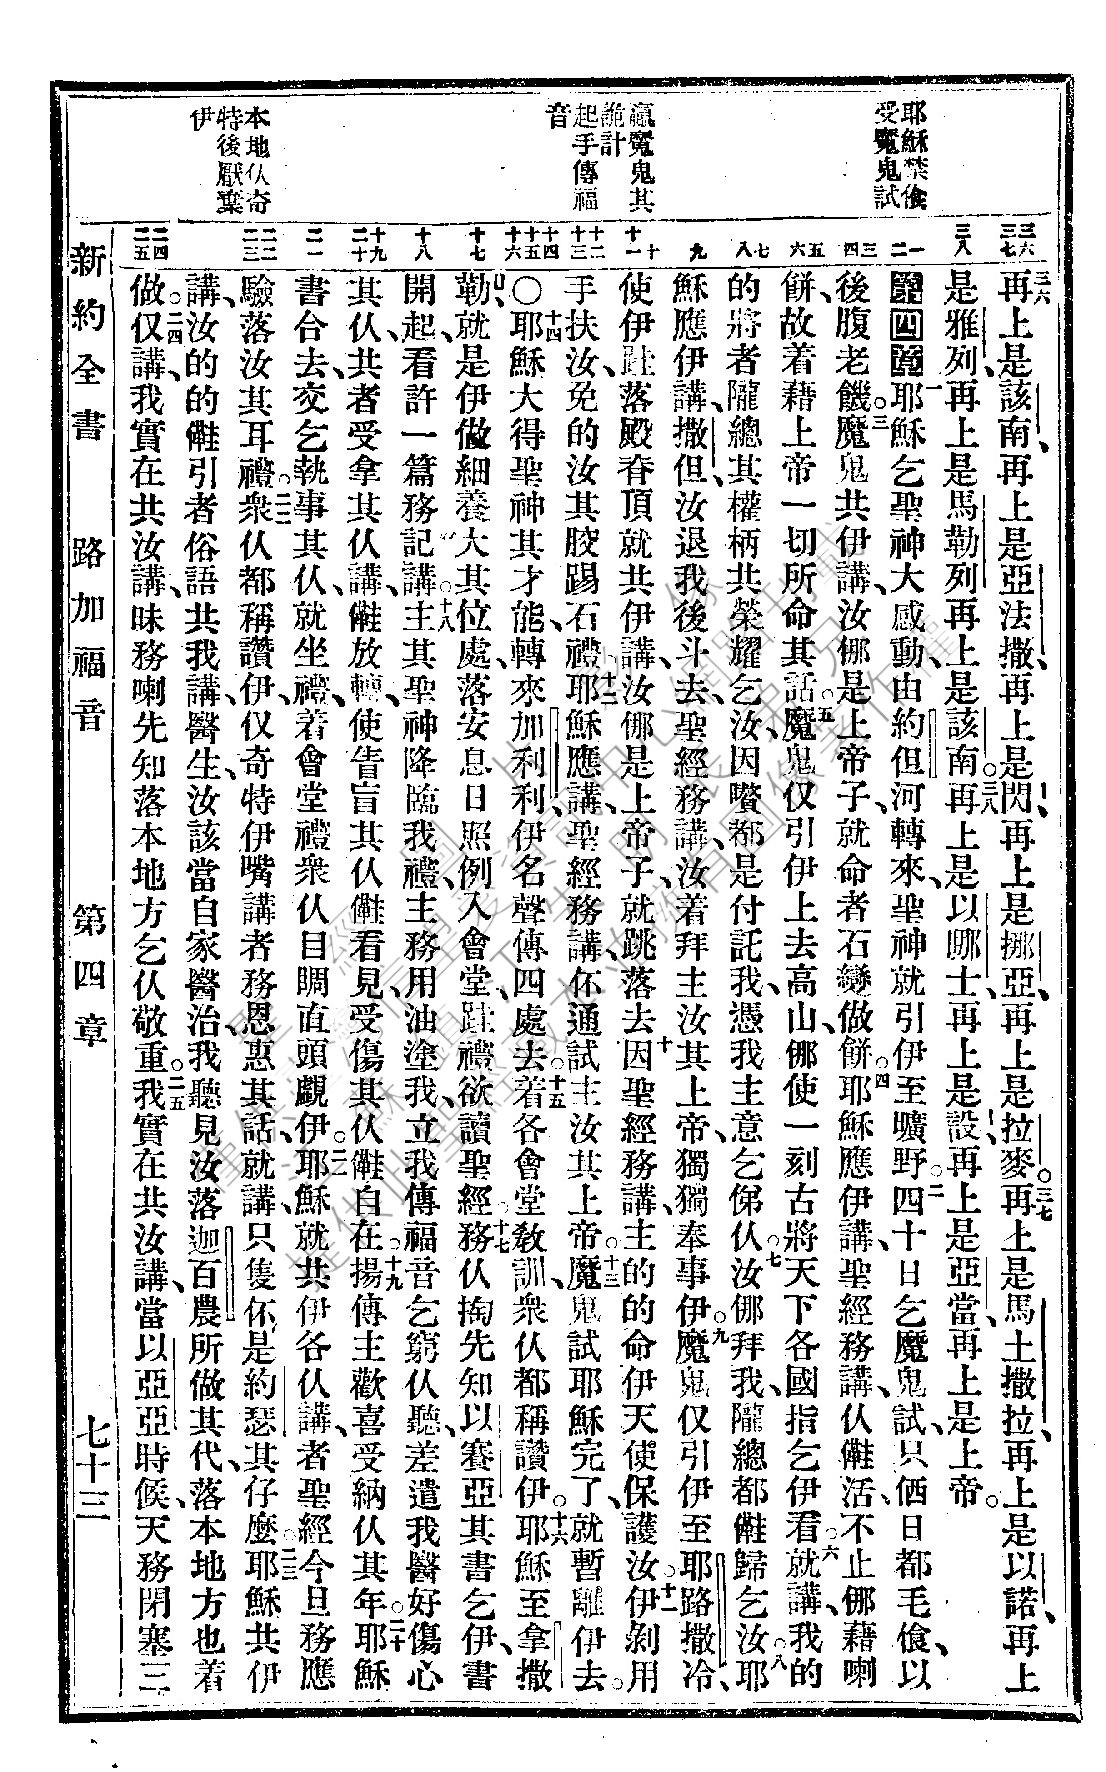 耶穌禁食
受魔鬼試
贏魔鬼其
詭計
起手傳福
音
本地仈奇
特後厭棄
伊
三六 三七
三八
一 二
三 四
五 六
七 八
九
十 十一
十二 十三
十四 十五 十六
十七
十八
十九 二十
二一
二二 二三
二四 二五
再上是該南、再上是亞法撒、再上是閃、再上是挪亞、再上是拉麥。三七再上是馬土撒拉、再上是以諾、再上
是雅列、再上是馬勒列、再上是該南。三八再上是以哪士、再上是設、再上是亞當、再上是上帝。
第四章 一耶穌乞聖神大感動、由約但河轉來、聖神就引伊至曠野。二四十日乞魔鬼試、只日都毛食、以
後腹老饑。三魔鬼共伊講、汝是上帝子、就命者石變做餅。四耶穌應伊講、聖經務講、仈活、不止藉喇
餅、故着藉上帝一切所命其話。五魔鬼仅引伊上去高山、使一刻古將天下各國指乞伊看。六就講、我的
的將者隴總其權柄共榮耀乞汝、因嚽都是付託我、憑我主意乞仈。七汝拜我、隴總都歸乞汝。八耶
穌應伊講、撒但、汝退我後斗去、聖經務講、汝着拜主汝其上帝、獨獨奉事伊。九魔鬼仅引伊至耶路撒冷、
使伊落殿脊頂、就共伊講、汝是上帝子、就跳落去。十因聖經務講、主的的命伊天使保護汝。十一伊剝用
手扶汝、免的汝其骹踢石禮。十二耶穌應講、聖經務講、伓通試主汝其上帝。十三魔鬼試耶穌完了、就暫離伊去。
〇十四耶穌大得聖神其才能、轉來加利利、伊名聲傳四處去。十五着各會堂敎訓、衆仈都稱讚伊。十六耶穌至拿撒
勒、就是伊做細養大其位處、落安息日照例入會堂、禮欲讀聖經。十七務仈掏先知以賽亞其書乞伊、書
開起、看許一篇務記講。十八主其聖神降臨我禮、主務用油塗我、立我傳福音乞窮仈聽、差遣我醫好傷心
其仈、共者受拿其仈講、放轉、使靑盲其仈看見、受傷其仈自在。十九揚傳主歡喜受納仈其年。二十耶穌
書合去、交乞執事其仈、就坐禮、着會堂禮衆仈目睭直頭覷伊。二一耶穌就共伊各仈講、者聖經今旦務應
驗落汝其耳禮。二二衆仈都稱讚伊、仅奇特伊嘴講者務恩惠其話、就講、只隻伓是約瑟其仔麼。二三耶穌共伊
講、汝的的引者俗語共我講、醫生、汝該當自家醫治、我聽見汝落迦百農所做其代、落本地方也着
做。二四仅講、我實在共汝講、昧務喇先知落本地方乞仈敬重。二五我實在共汝講、當以亞亞時候、天務閉塞三
新約全書 路加福音 第四章 七十三